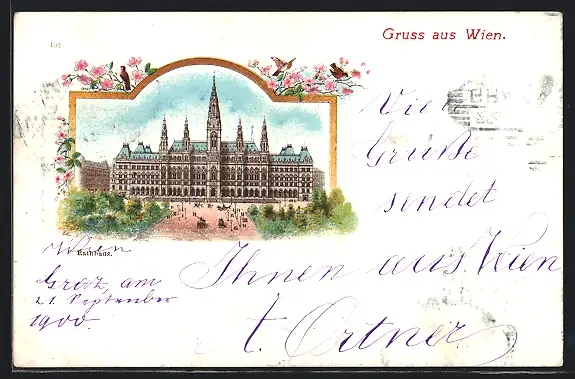 Gruss aus Wien.
Rathhaus.
Viele
Grüße
sendet
Ihnen aus Wien
t. Ortner
Wien
Graz, am
21. September
1900.